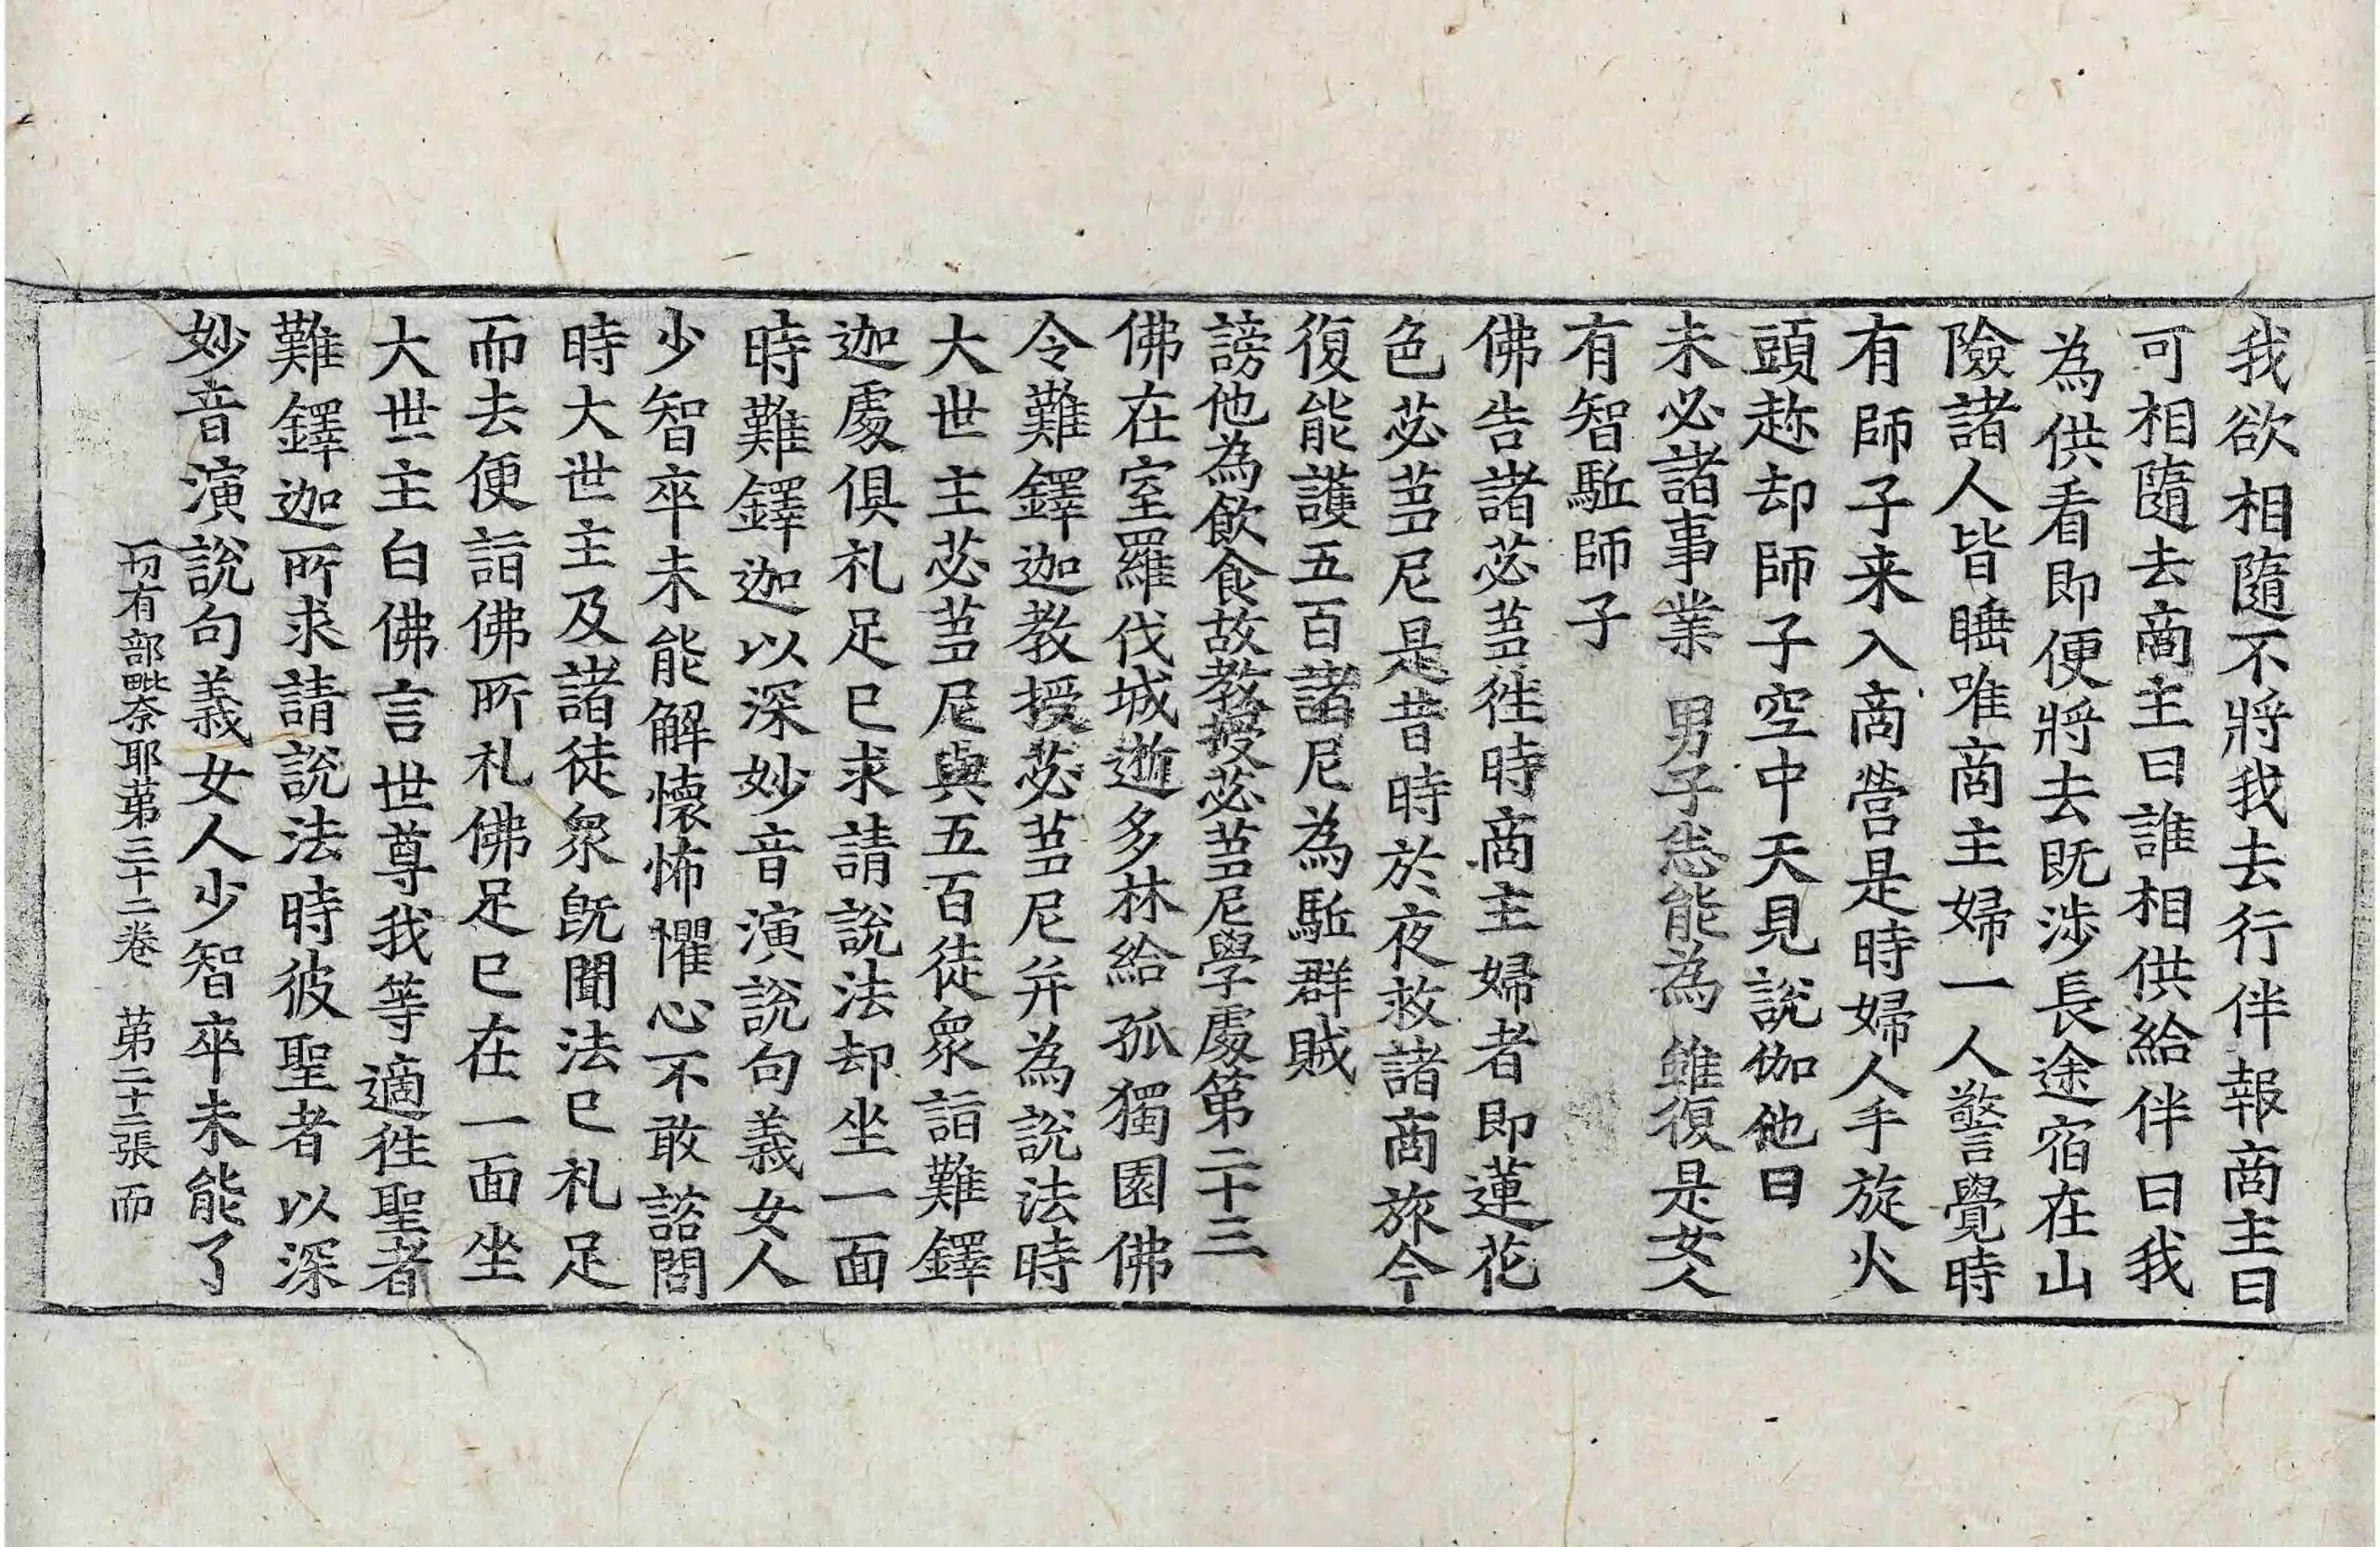 我欲相隨不將我去行伴報商主曰
可相隨去商主曰誰相供給伴曰我
為供看即便將去既涉長途宿在山
險諸人皆睡唯商主婦一人警覺時
有師子来入商營是時婦人手旋火
頭趂却師子空中天見說伽他曰
未必諸事業 男子悉能為 雖復是女人
有智駈師子
佛告諸苾芻徃時商主婦者即蓮花
色苾芻尼是昔時於夜救諸商旅今
復能護五百諸尼為駈群賊
謗他為飲食故教授苾芻尼學處第二十三
佛在室羅伐城逝多林給孤獨園佛
令難鐸迦教授苾芻尼并為說法時
大世主苾芻尼與五百徒眾詣難鐸
迦處俱礼足已求請說法却坐一面
時難鐸迦以深妙音演說句義女人
少智卒未能解懷怖懼心不敢諮問
時大世主及諸徒眾既聞法已礼足
而去便詣佛所礼佛足已在一面坐
大世主白佛言世尊我等適徃聖者
難鐸迦所求請說法時彼聖者以深
妙音演說句義女人少智卒未能了
一切有部毗奈耶第三十二卷 第二十三張 而